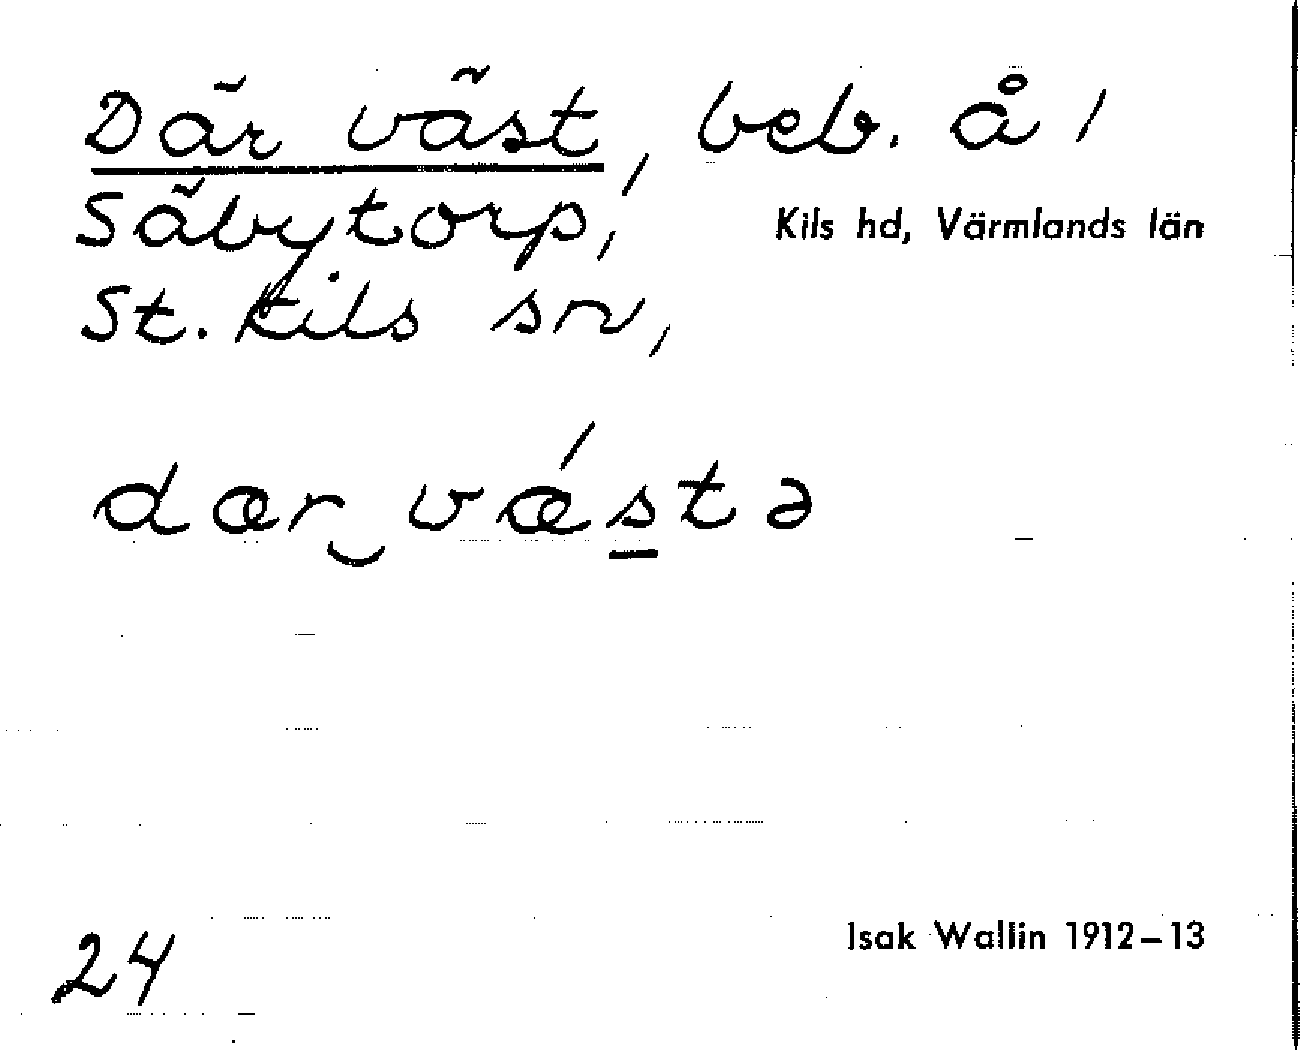 Där väst, beb. å 1
Säbytorp,
Kils hd, Värmlands län
St. Kils sn,
dær‿vǽs̲tə
Isak Wallin 1912–13
24